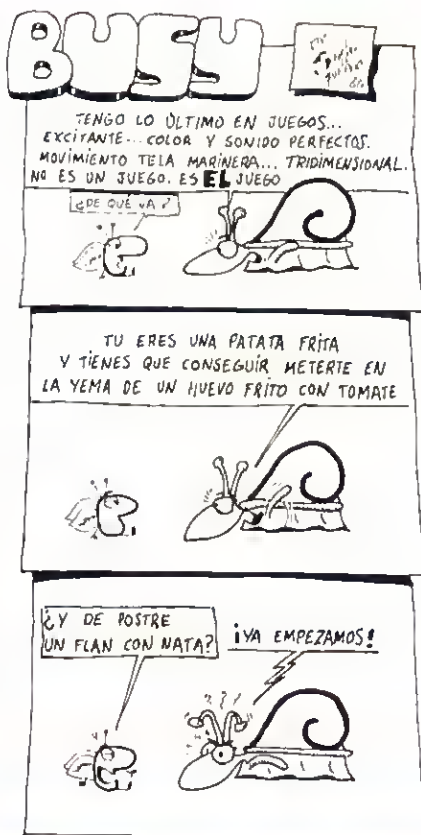 BUSY
TENGO LO ÚLTIMO EN JUEGOS...
EXCITANTE... COLOR Y SONIDO PERFECTOS.
MOVIMIENTO TELA MARINERA... TRIDIMENSIONAL.
NO ES UN JUEGO. ES EL JUEGO
¿DE QUÉ VA?
TU ERES UNA PATATA FRITA
Y TIENES QUE CONSEGUIR METERTE EN
LA YEMA DE UN HUEVO FRITO CON TOMATE
¿Y DE POSTRE
UN FLAN CON NATA?
¡YA EMPEZAMOS!